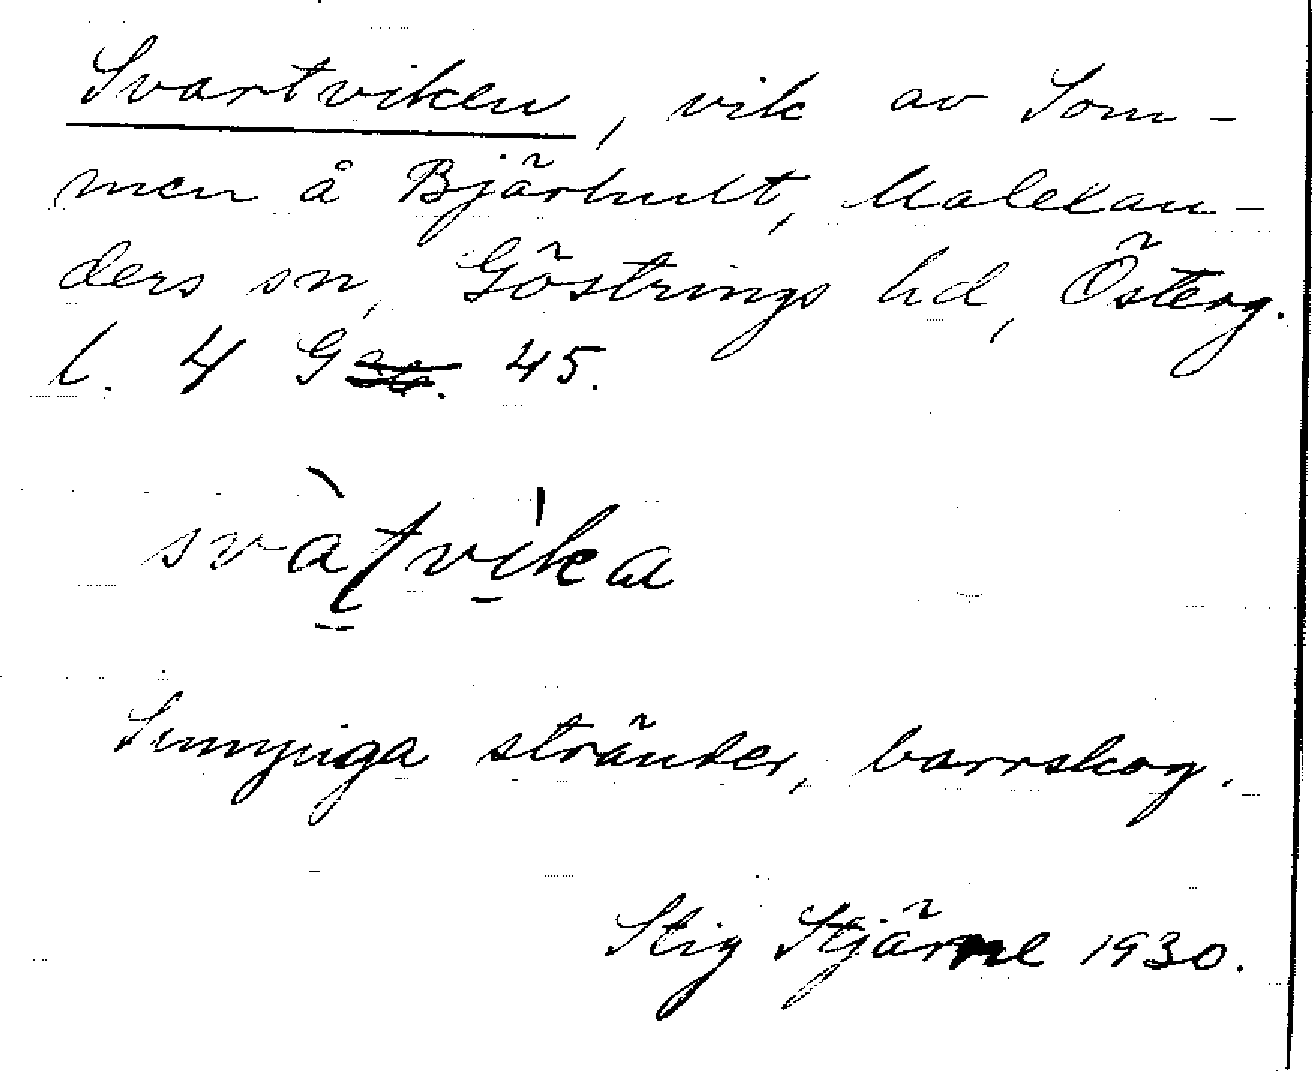 Svartviken, vik av Som-
men å Bjärhult, Malexan-
ders sn, Göstrings hd, Österg.
l. 4 G 45.
svàtvìka
steniga stränder, barrskog.
Stig Stjärne 1930.